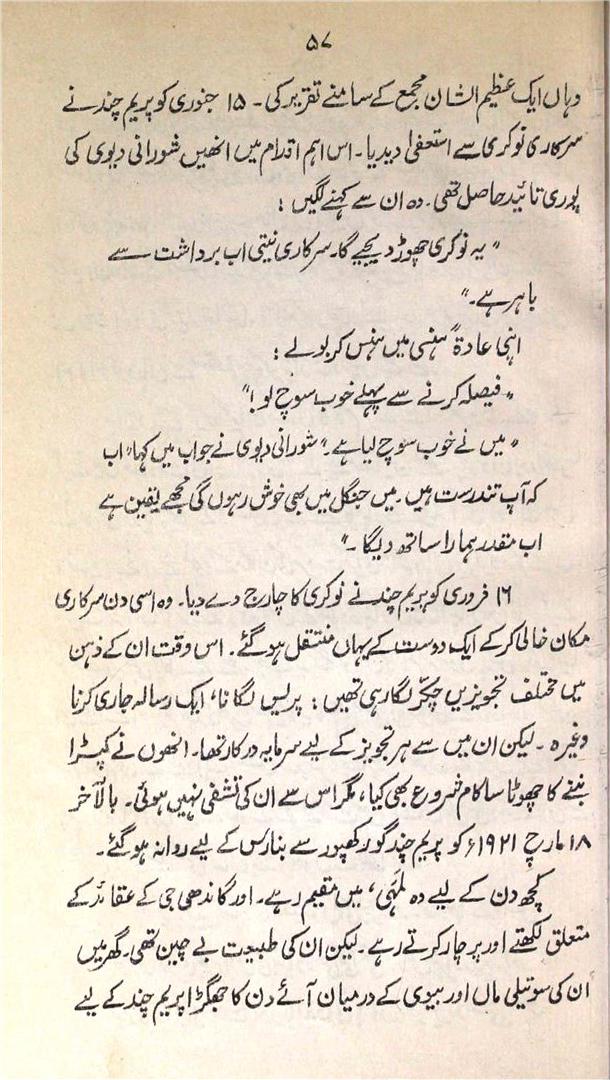 ۵۷
وہاں ایک عظیم الشان مجمع کے سامنے تقریر کی ۔ ۱۵ جنوری کو پریم چند نے
سرکاری نوکری سے استعفیٰ دیدیا ۔ اس اہم اقدام میں انھیں شورانی دیوی کی
پوری تائید حاصل تھی ۔ وہ ان سے کہنے لگیں :
" یہ نوکری چھوڑ دیجیے گا۔ سرکاری نیتی اب برداشت سے
باہر ہے ۔"
اپنی عادۃً ہنسی میں ہنس کر بولے :
" فیصلہ کرنے سے پہلے خوب سوچ لو !"
" میں نے خوب سوچ لیا ہے ۔" شورانی دیوی نے جواب میں کہا " اب
کہ آپ تندرست ہیں ۔ میں جنگل میں بھی خوش رہوں گی مجھے یقین ہے
اب مقدر ہمارا ساتھ دیگا ۔"
۱۶ فروری کو پریم چند نے نوکری کا چارج دے دیا ۔ وہ اسی دن سرکاری
مکان خالی کر کے ایک دوست کے یہاں منتقل ہو گئے ۔ اس وقت ان کے ذہن
میں مختلف تجویزیں چکّر لگا رہی تھیں : پریس لگانا ، ایک رسالہ جاری کرنا
وغیرہ ۔ لیکن ان میں سے ہر تجویز کے لیے سرمایہ درکار تھا ۔ انھوں نے کپڑا
بننے کا چھوٹا سا کام شروع بھی کیا ، مگر اس سے ان کی تشفی نہیں ہوئی ۔ بالآخر
۱۸ مارچ ۱۹۲۱ء کو پریم چند گورکھپور سے بنارس کے لیے روانہ ہو گئے ۔
کچھ دن کے لیے وہ لمہی ، میں مقیم رہے ۔ اور گاندھی جی کے عقائد کے
متعلق لکھتے اور پرچار کرتے رہے ۔ لیکن ان کی طبیعت بے چین تھی ۔ گھر میں
ان کی سوتیلی ماں اور بیوی کے درمیان آئے دن کا جھگڑا پریم چند کے لیے